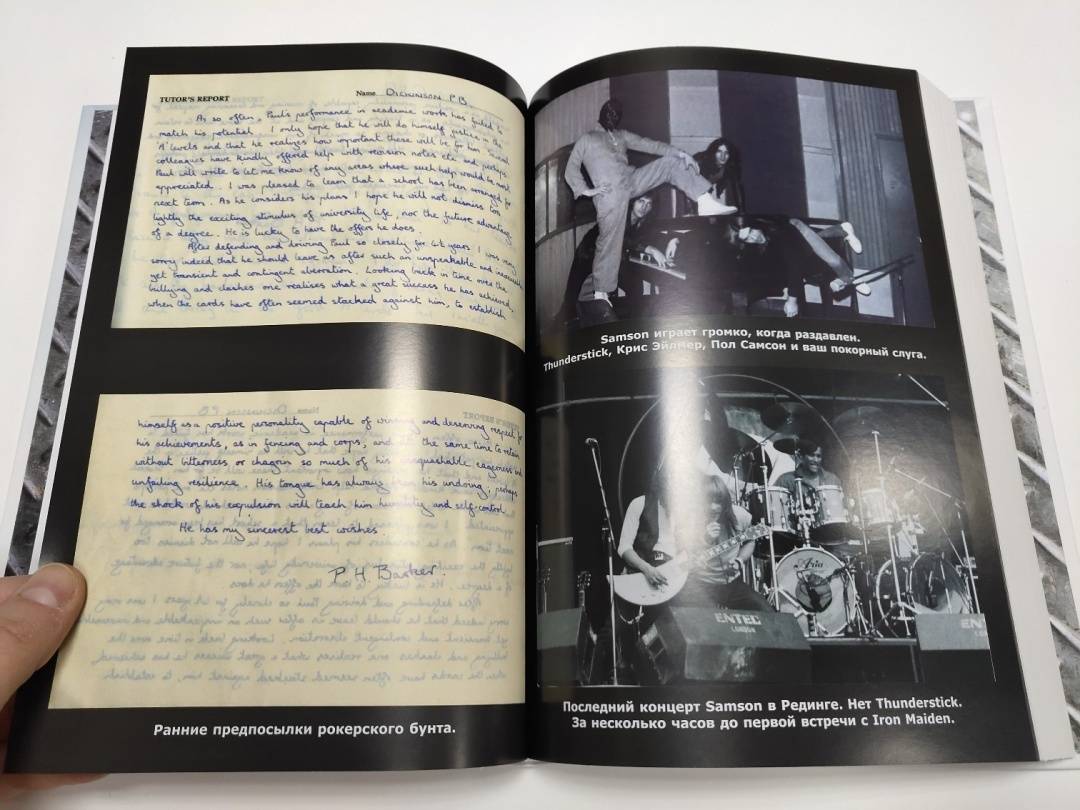 TUTOR'S REPORT
Name DICKINSON P B
As so often, Paul's performance in academic work has failed to
match his potential. I only hope that he will do himself justice in the
'A' levels and that he realizes how important these will be for him. Several
colleagues have kindly offered help with revision notes etc. and perhaps
Paul will write to let me know of any areas where such help would be most
appreciated. I was pleased to learn that a school has been arranged for
next term. As he considers his plans I hope he will not dismiss too
lightly the exciting stimulus of university life, nor the future advantage
of a degree. He is lucky to have the offers he does.
After defending and driving Paul so closely for years I was very
sorry indeed that he should leave us after such an unspeakable and
yet transient and contingent aberration. Looking back in time over the
bullying and clashes one realises what a great success he has achieved,
when the cards have often seemed stacked against him, to establish
himself as a positive personality capable of winning and deserving respect for
his achievements, as in fencing and corps, and at the same time to retain
without bitterness or chagrin so much of his unquashable eagerness and
unfailing resilience. His tongue has always been his undoing; perhaps
the shock of his expulsion will teach him humility and self-control.
He has my sincerest best wishes.
P H Barker
Ранние предпосылки рокерского бунта.
Samson играет громко, когда раздавлен.
Thunderstick, Крис Эйлмер, Пол Самсон и ваш покорный слуга.
Aria
ENTEC
LONDON
ENTEC
Последний концерт Samson в Рединге. Нет Thunderstick.
За несколько часов до первой встречи с Iron Maiden.